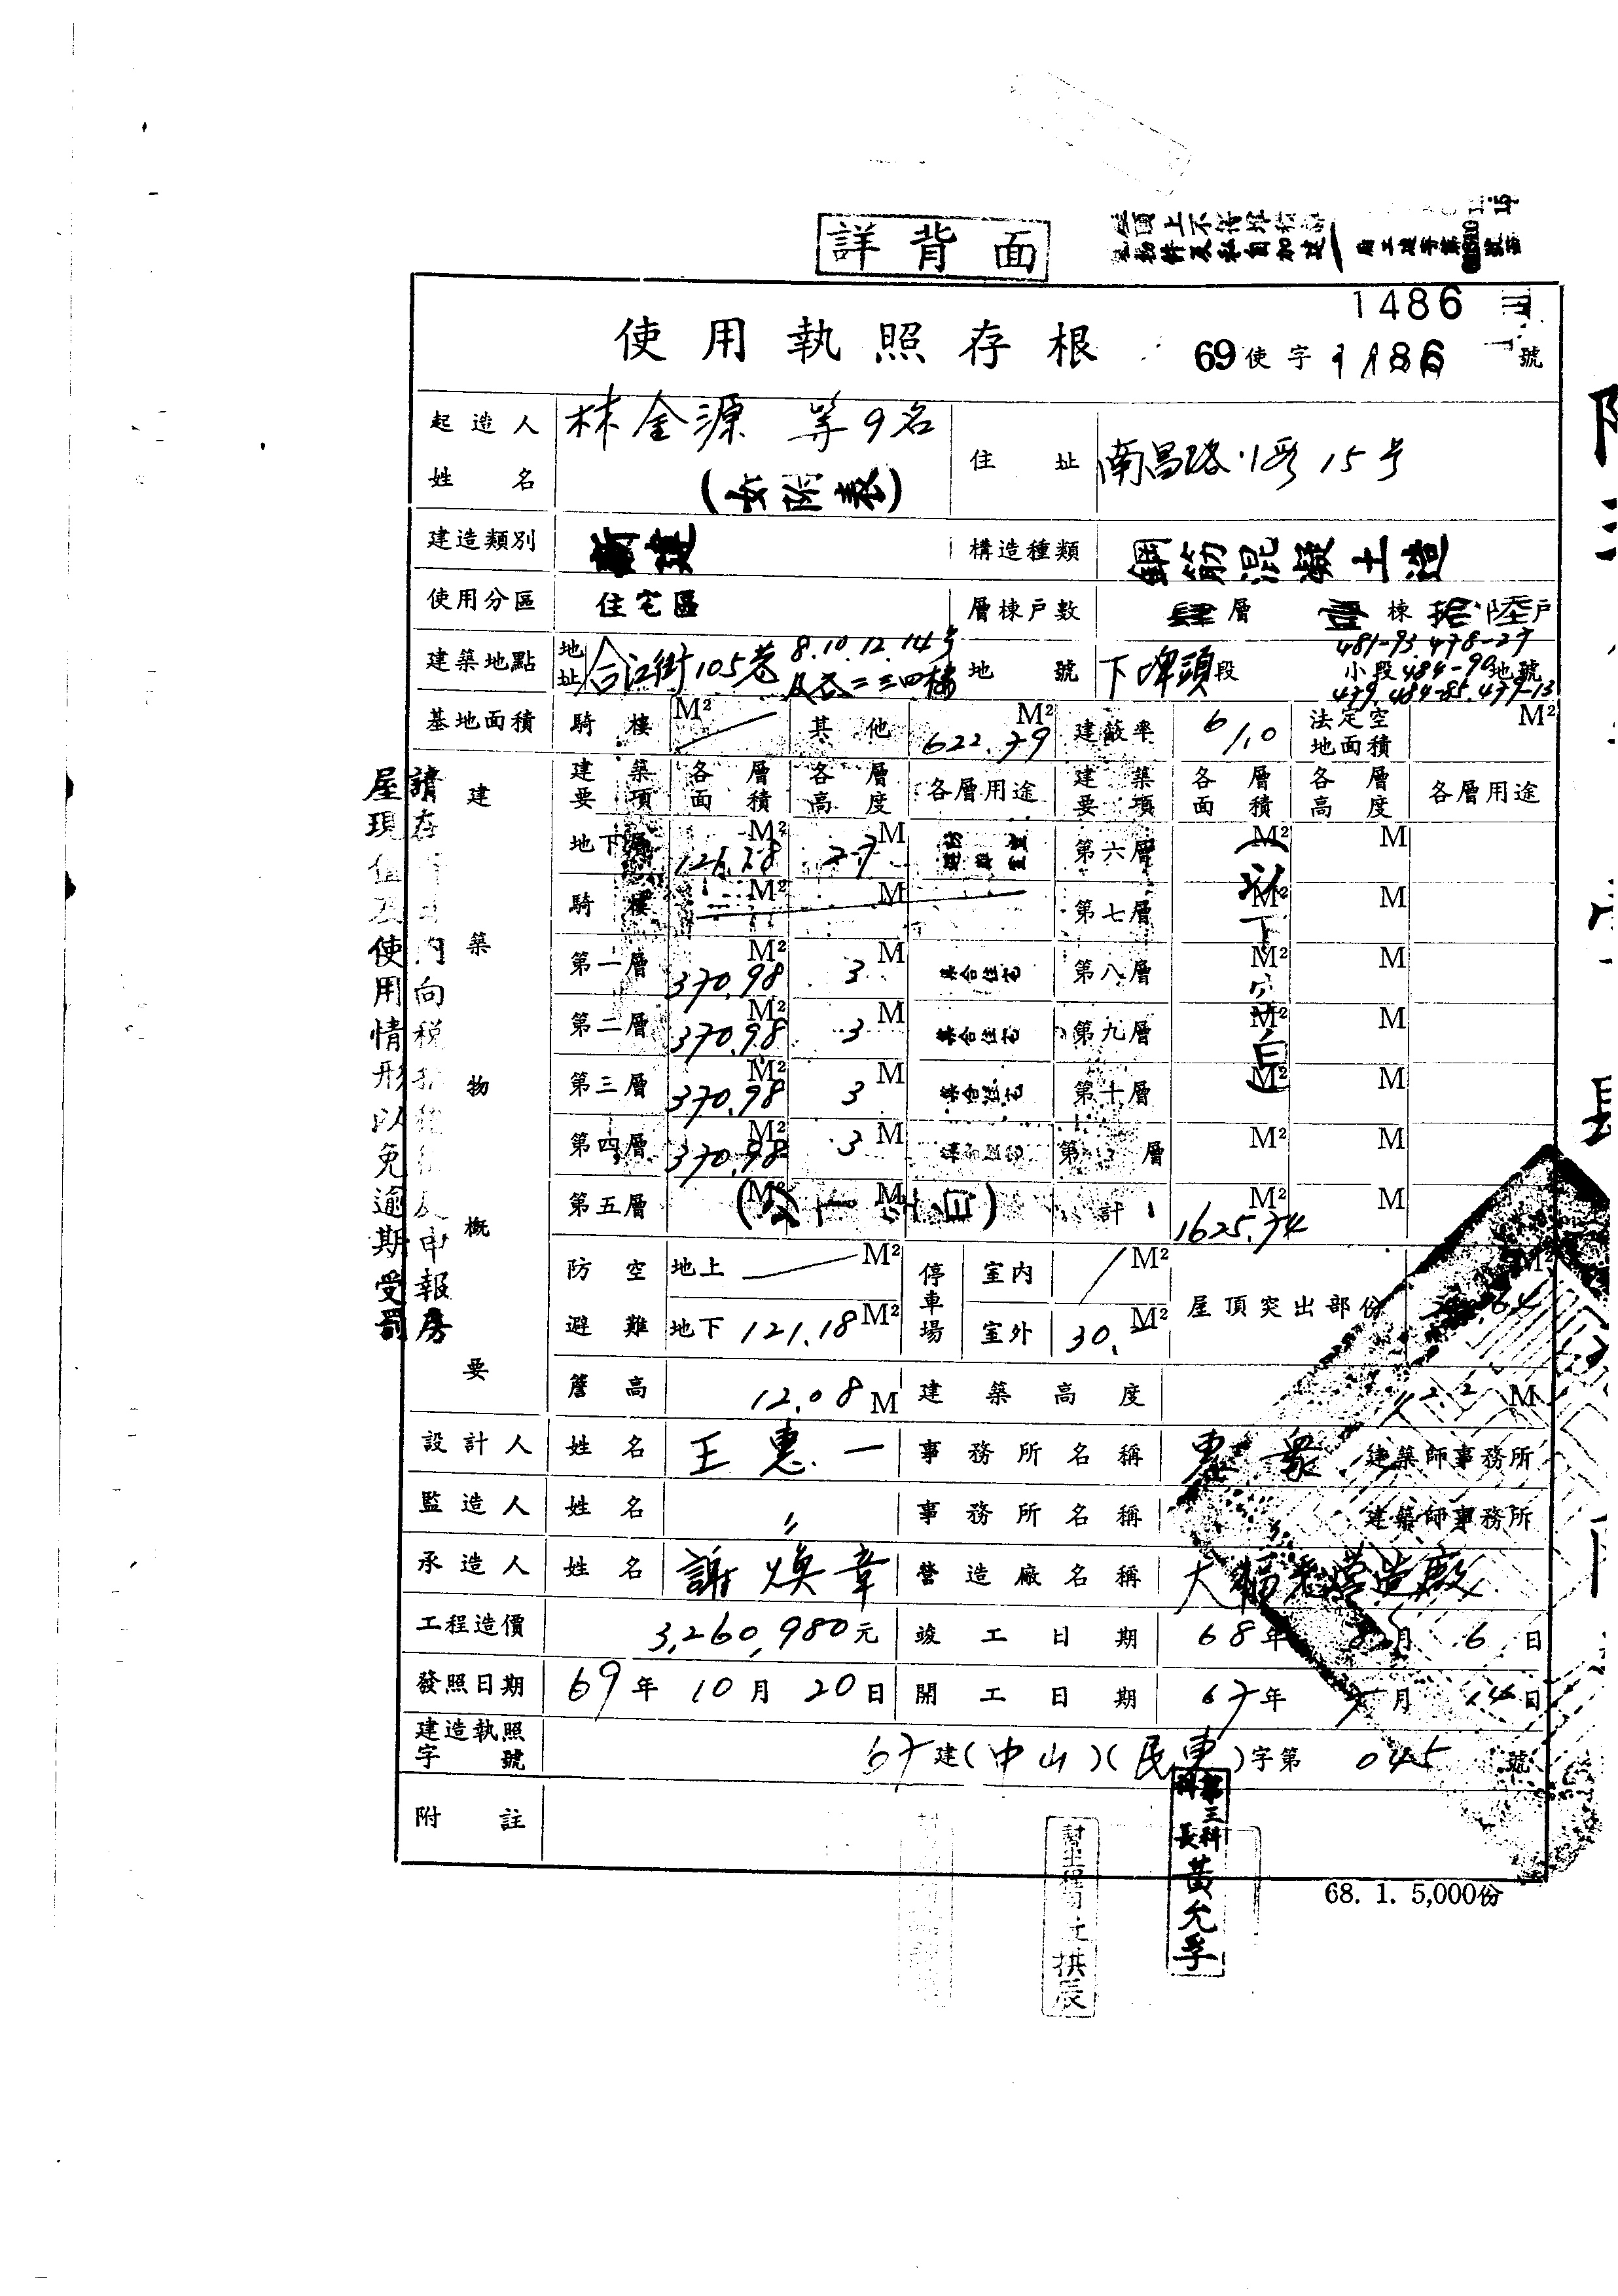 詳背面
1486
使用執照存根 69使字1486號
起造人姓名 林金源 等9名 (如附表) 住址 南昌路1段15号
建造類別 新建 構造種類 鋼筋混凝土造
使用分區 住宅區 層棟戶數 肆層 壹棟 拾陸戶
建築地點 地址 合江街105巷 8.10.12.14号及各二三四樓 地號 下埤頭段 小段 481-93.478-27 484-90地號 479.484-85.477-13
基地面積 騎樓 M² 其他 622.79 M² 建蔽率 6/10 法定空地面積 M²
建築物概要
建築要項 各層面積 各層高度 各層用途 建築要項 各層面積 各層高度 各層用途
地下層 M² M 第六層 M² M
騎樓 M² M 第七層 M² M
第一層 370.98 M² 3 M 集合住宅 第八層 M² M
第二層 370.98 M² 3 M 集合住宅 第九層 M² M
第三層 370.98 M² 3 M 集合住宅 第十層 M² M
第四層 370.98 M² 3 M 集合住宅 第 層 M² M
第五層 M² M (以下空白) 計 1625.74 M² M
(以下空白)
防空避難 地上 M² 停車場 室內 M² 屋頂突出部份 M²
地下 121.18 M² 室外 30. M²
簷高 12.08 M 建築高度 M
設計人 姓名 王惠一 事務所名稱 惠眾 建築師事務所
監造人 姓名 〃 事務所名稱 建築師事務所
承造人 姓名 謝煥章 營造廠名稱 大 營造廠
工程造價 3,260,980元 竣工日期 68年8月6日
發照日期 69年10月20日 開工日期 67年 月14日
建造執照字號 67建(中山)(民東)字第045號
附註
第三科科長黃允孚
拱辰
68. 1. 5,000份
請在 日內向稅 申報房
屋現值及使用情形以免逾期受罰